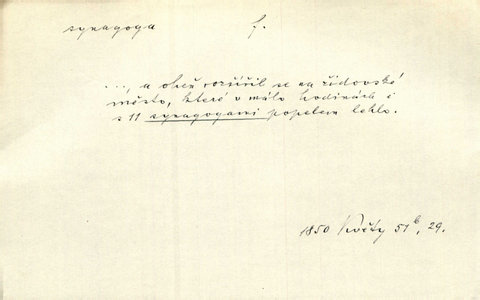 synagoga f.
..., a oheň rozšířil se na židovské
město, které v málo hodinách i
s 11 synagogami popelem lehlo.
1850 Květy 51b, 29.